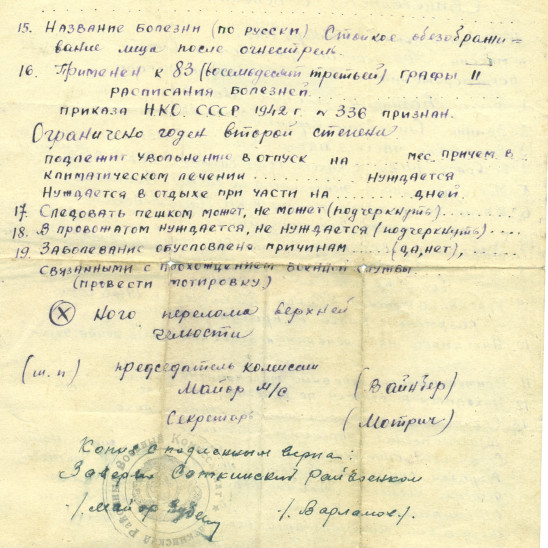 15. Название болезни (по русски) Стойкое обезображи-
вание лица после огнестрель.
16. Применен к 83 (восемьдесят третьей) графы II
расписания болезней . . . . . . . . . . . .
приказа НКО. СССР 1942 г. № 336 признан.
Ограничено годен второй степени
подлежит увольнению в отпуск на . . . . . . . мес. причем в . .
климатическом лечении . . . . . . . . . . . . нуждается
Нуждается в отдыхе при части на . . . . . . . . дней.
17. Следовать пешком может, не может (подчеркнуть) . . . . . .
18. В провожатом нуждается, не нуждается (подчеркнуть) . . . .
19. Заболевание обусловлено причинам . . . . (да, нет), . . . . .
связанными с прохождением военной службы
(провести мотировку)
ⓧ ного перелома верхней
челюсти
(ш. п) председатель комиссии
Майор м/с (Вайнбер)
Секретарь (Мотрич)
Копия с подлинным верна:
Заверил Саткинский Райвоенком
/. майор /. Варламов/.